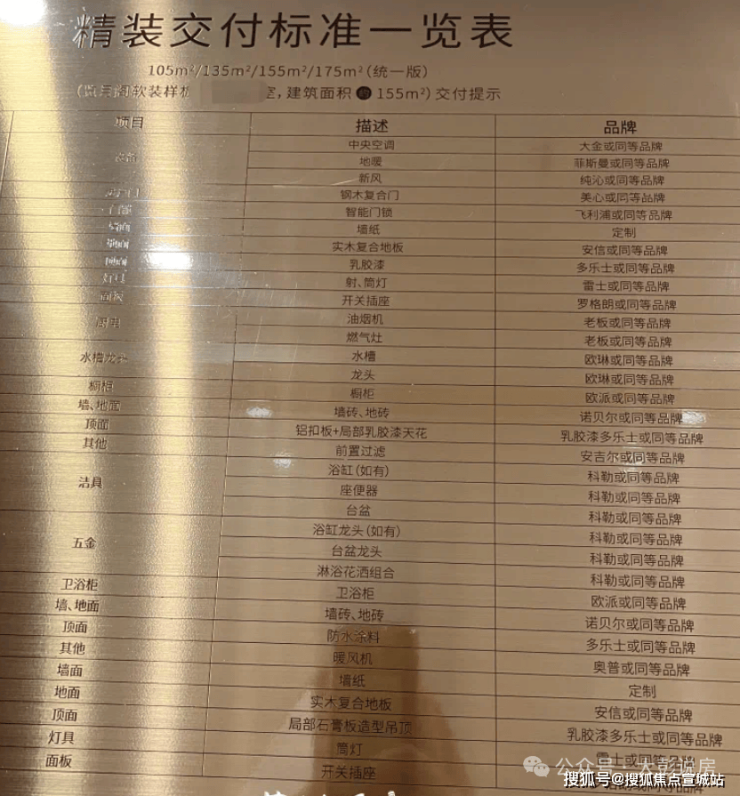 精装交付标准一览表
105m²/135m²/155m²/175m²(统一版)
软装样板 室,建筑面积 155m²)交付提示
项目 描述 品牌
中央空调 大金或同等品牌
地暖 菲斯曼或同等品牌
新风 纯沁或同等品牌
钢木复合门 美心或同等品牌
智能门锁 飞利浦或同等品牌
墙面 墙纸 定制
地面 实木复合地板 安信或同等品牌
顶面 乳胶漆 多乐士或同等品牌
灯具 射、筒灯 雷士或同等品牌
面板 开关插座 罗格朗或同等品牌
厨具 油烟机 老板或同等品牌
燃气灶 老板或同等品牌
水槽龙头 水槽 欧琳或同等品牌
龙头 欧琳或同等品牌
橱柜 橱柜 欧派或同等品牌
墙、地面 墙砖、地砖 诺贝尔或同等品牌
顶面 铝扣板+局部乳胶漆天花 乳胶漆多乐士或同等品牌
其他 前置过滤 安吉尔或同等品牌
洁具 浴缸(如有) 科勒或同等品牌
座便器 科勒或同等品牌
台盆 科勒或同等品牌
五金 浴缸龙头(如有) 科勒或同等品牌
台盆龙头 科勒或同等品牌
淋浴花洒组合 科勒或同等品牌
卫浴柜 卫浴柜 欧派或同等品牌
墙、地面 墙砖、地砖 诺贝尔或同等品牌
顶面 防水涂料 多乐士或同等品牌
其他 暖风机 奥普或同等品牌
墙面 墙纸 定制
地面 实木复合地板 安信或同等品牌
顶面 局部石膏板造型吊顶 乳胶漆多乐士或同等品牌
灯具 筒灯 雷士或同等品牌
面板 开关插座
公众号·大彭说房
搜狐号@搜狐焦点宣城站